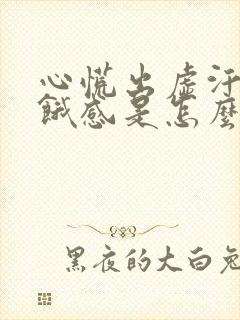 心慌出虚汗
餓感是怎麼
黑夜的大白兔